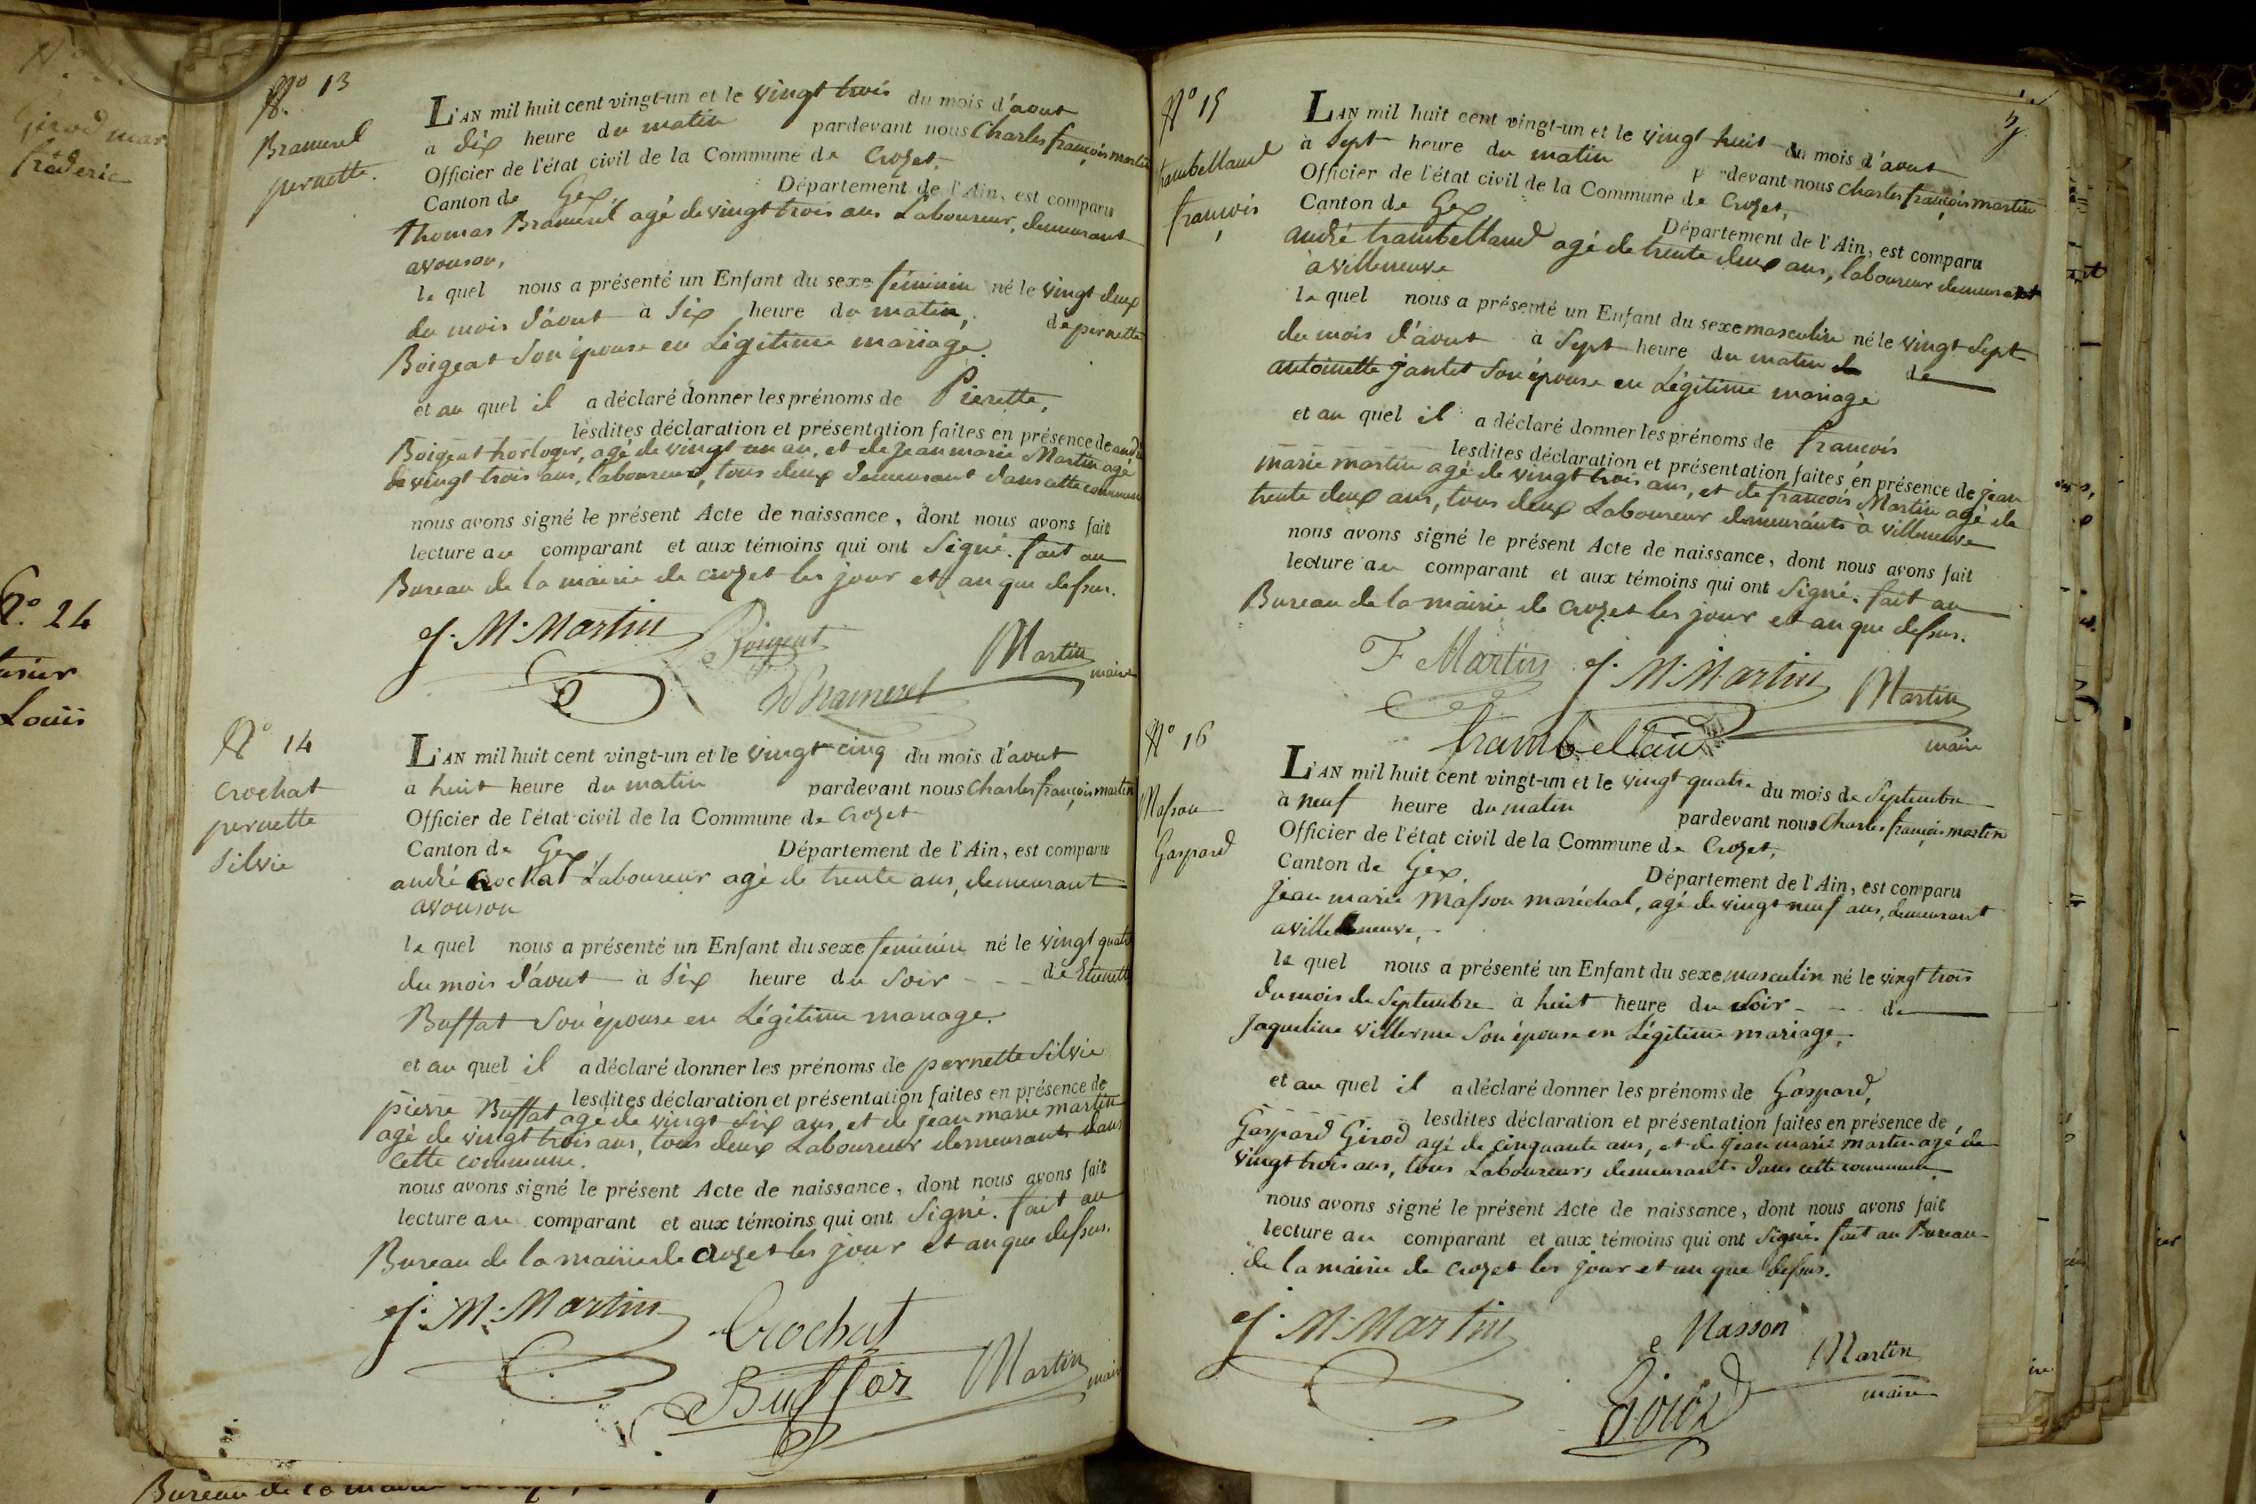 Girod mar
fréderic
N° 24
Louis
N° 13
Bramerel
pernette.
L'AN mil huit cent vingt-un et le vingt trois du mois d'aout
à dix heure du matin pardevant nous Charles françois martin
Officier de l'état civil de la Commune de Crozet,
Canton de Gex, Département de l'Ain, est comparu
Thomas Bramerel agé de vingt trois ans Laboureur, demeurant
avouson,
le quel nous a présenté un Enfant du sexe féminin né le vingt deux
du mois d'aout à Six heure du matin, de pernette
Boigeat Son épouse en Légitime mariage.
et au quel il a déclaré donner les prénoms de Pierette,
lesdites déclaration et présentation faites en présence de andré
Boigeat horloger, agé de vingt un an, et de Jean marie Martin agé
de vingt trois ans, laboureur, tous deux demeurant dans cette commune
nous avons signé le présent Acte de naissance, dont nous avons fait
lecture au comparant et aux témoins qui ont Signé. fait au
Bureau de la mairie de crozet les jour et an que dessus.
J. M. Martin Boigeat Martin
maire
Bramerel
N° 14
Crochat
pernette
Silvie
L'AN mil huit cent vingt-un et le vingt cinq du mois d'aout
à huit heure du matin pardevant nous Charles françois martin
Officier de l'état civil de la Commune de Crozet
Canton de Gex, Département de l'Ain, est comparu
andré Crochat Laboureur agé de trente ans, demeurant
avouson
le quel nous a présenté un Enfant du sexe feminin né le vingt quatre
du mois d'aout à Six heure du Soir - - - de Etienette
Buffat Son épouse en Légitime mariage.
et au quel il a déclaré donner les prénoms de pernette Silvie
lesdites déclaration et présentation faites en présence de
pierre Buffat agé de vingt Six ans, et de jean marie martin
agé de vingt trois ans, tous deux Laboureur demeurants dans
cette commune.
nous avons signé le présent Acte de naissance, dont nous avons fait
lecture au comparant et aux témoins qui ont Signé. fait au
Bureau de la mairie de Crozet les jour et an que dessus.
J. M. Martin Crochat
Buffaz Martin maire
Bureau de la mairie
7
N° 15
trambelland
françois
L'AN mil huit cent vingt-un et le vingt huit du mois d'aout
à Sept heure du matin pardevant nous Charles françois martin
Officier de l'état civil de la Commune de Crozet,
Canton de Gex Département de l'Ain, est comparu
andré trambelland agé de trente deux ans, laboureur demeurant
à villeneuve
le quel nous a présenté un Enfant du sexe masculin né le vingt Sept
du mois d'aout à Sept heure du matin de
antoinette jantet Son épouse en Légitime mariage
et au quel il a déclaré donner les prénoms de françois
lesdites déclaration et présentation faites, en présence de jean
marie martin agé de vingt trois ans, et de francois Martin agé de
trente deux ans, tous deux Laboureur demeurants à villeneuve
nous avons signé le présent Acte de naissance, dont nous avons fait
lecture au comparant et aux témoins qui ont Signé. fait au
Bureau de la mairie de crozet les jour et an que dessus.
F Martin J. M. Martin Martin
maire
trambelland
N° 16
Masson
Gaspard
L'AN mil huit cent vingt-un et le vingt quatre du mois de Septembre
à neuf heure du matin pardevant nous Charles françois martin
Officier de l'état civil de la Commune de Crozet,
Canton de Gex. Département de l'Ain, est comparu
Jean marie Masson maréchal, agé de vingt neuf ans, demeurant
a villeneuve,
le quel nous a présenté un Enfant du sexe masculin né le vingt trois
du mois de Septembre à huit heure du Soir - - - de
Jaqueline villerme Son épouse en Légitime mariage,
et au quel il a déclaré donner les prénoms de Gaspard,
lesdites déclaration et présentation faites en présence de
Gaspard Girod agé de cinquante ans, et de jean marie martin agé de
vingt trois ans, tous Laboureurs demeurants dans cette commune.
nous avons signé le présent Acte de naissance, dont nous avons fait
lecture au comparant et aux témoins qui ont Signé. fait au Bureau
de la mairie de crozet les jour et an que dessus.
J. M. Martin Masson Martin
maire
Girod